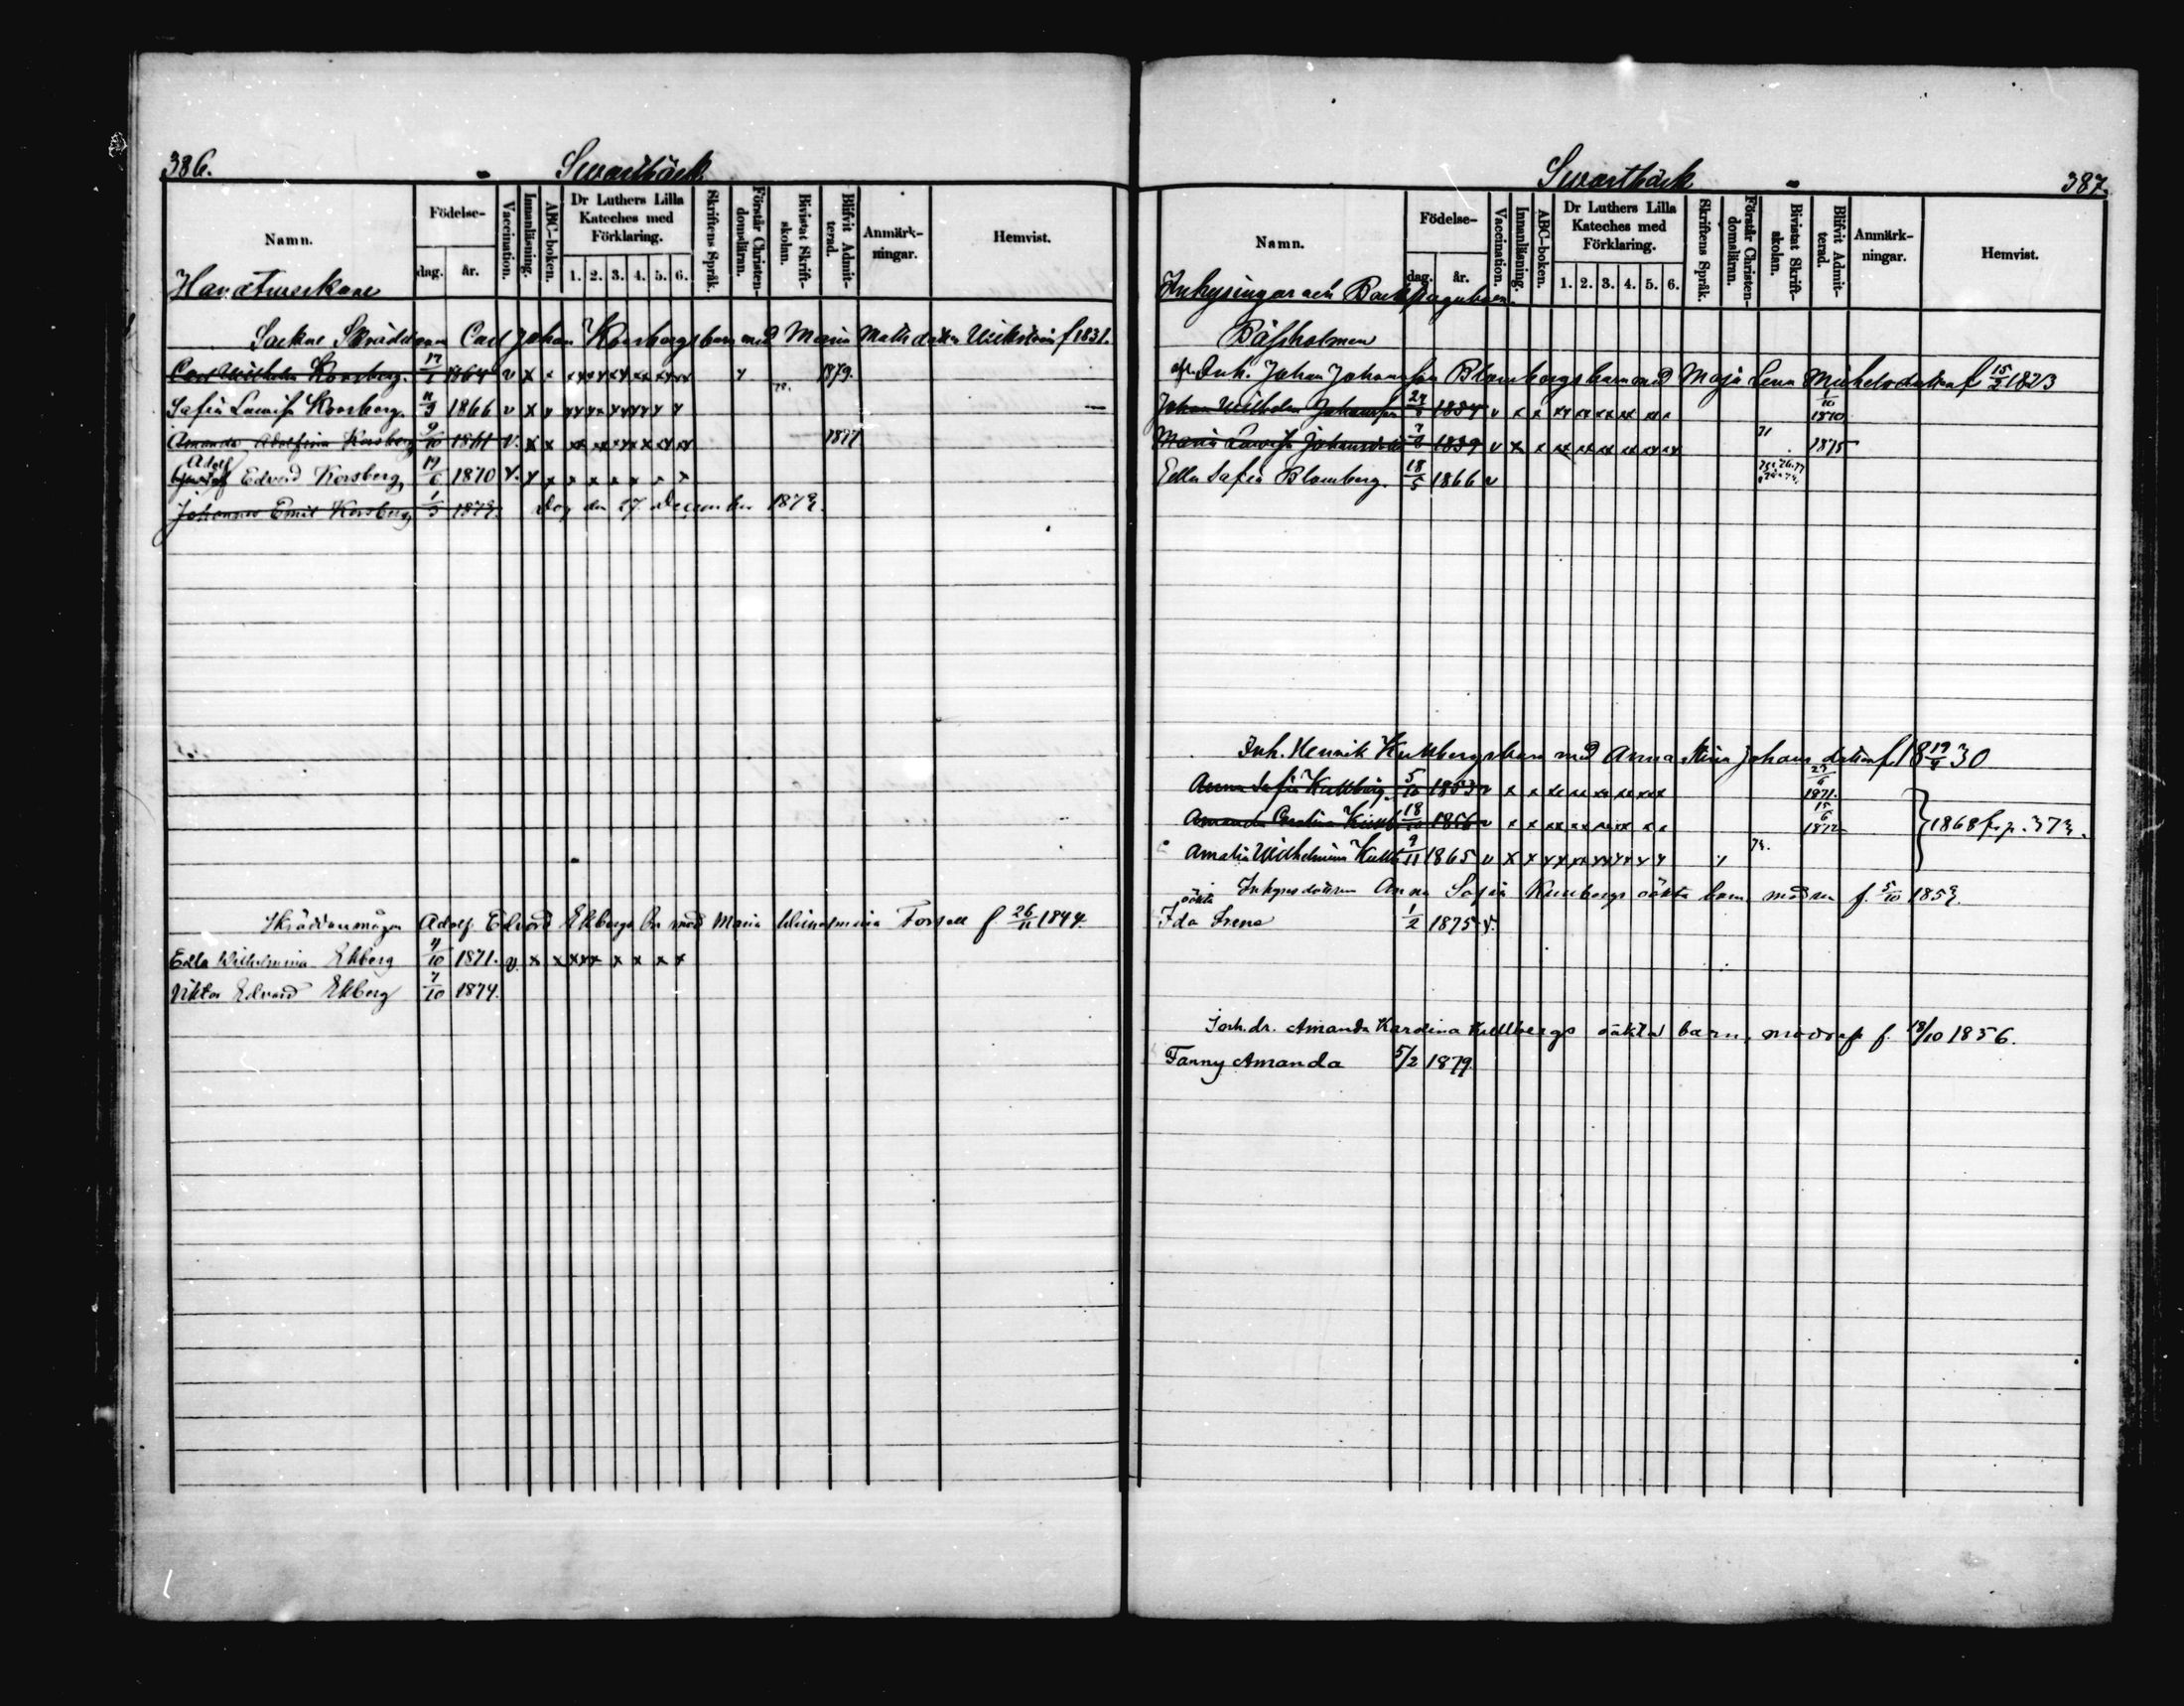 386. Swartbäck
Namn. Födelse- dag. år. Vaccination. Innanläsning. ABC-boken. Dr Luthers Lilla Kateches med Förklaring. 1. 2. 3. 4. 5. 6. Skriftens Språk. Förstår Christen-domsläran. Bivistat Skrift-skolan. Blifvit Admit-terad. Anmärk-ningar. Hemvist.
Handtverkare
Sockne Skräddaren Carl Johan Korsbergs barn med Maria Matts dotter f 1831.
Carl Wilhelm Korsberg. 1864 v x x xx xx xx xx xx 1879.
Safia Lowisa Korsberg. 11/3 1866 v x x
Amanda Adolfina Korsberg 9/10 1861 v. x x 1877
Adolf
Gustaf Edvard Korsberg, 19/6 1870 v. x x x x x x x x
Johannes Emil Korsberg, 1/3 1873. Dog den 27 December 1873.
Skräddaremågen Adolf Edvard Ekbergs br med Maria Wilhelmina Forsell f. 26/11 1844.
Edla Wilhelmina Ekberg 4/10 1871. v. x x xxx x x x x
Viktor Edvard Ekberg 7/10 1874.
Swartbäck 387.
Namn. Födelse- dag. år. Vaccination. Innanläsning. ABC-boken. Dr Luthers Lilla Kateches med Förklaring. 1. 2. 3. 4. 5. 6. Skriftens Språk. Förstår Christen-domsläran. Bivistat Skrift-skolan. Blifvit Admit-terad. Anmärk-ningar. Hemvist.
Inhysingar och
Båssholmen
afl. Inh. Johan Johansson Blombergs barn med Maja Lena Michelsdotter f 15/2 1823
Johan Wilhelm Johansson 1854 v x x xx xx xx xx xx 1/10 1870
Maria Lowisa Johansdotter 1859 v x x xx xx xx xx xx 71 1875
Edla Safia Blomberg. 18/5 1866 v
Inh. Henrik Kullbergs barn med Anna Stina Johans dotter f. 18 19/8 30
Anna Safia Kullberg 5/10 1853 v x x xx xx xx xx xxx 1871.
Amanda Carolina Kullb 18/10 1856 v x x xx xx xx xx x x 15/6 1872 } 1868 fr. p. 373.
Amalia Wilhelmina Kullb 9/11 1865 v x x
Inhyses dottren Anna Sofia Kullbergs oäkta barn modren f. 5/10 1853.
oäkta
Ida Irene 1/2 1875 v.
Amanda Karolina Kullbergs oäkta barn, f. 18/10 1856.
Fanny Amanda 5/2 1879.